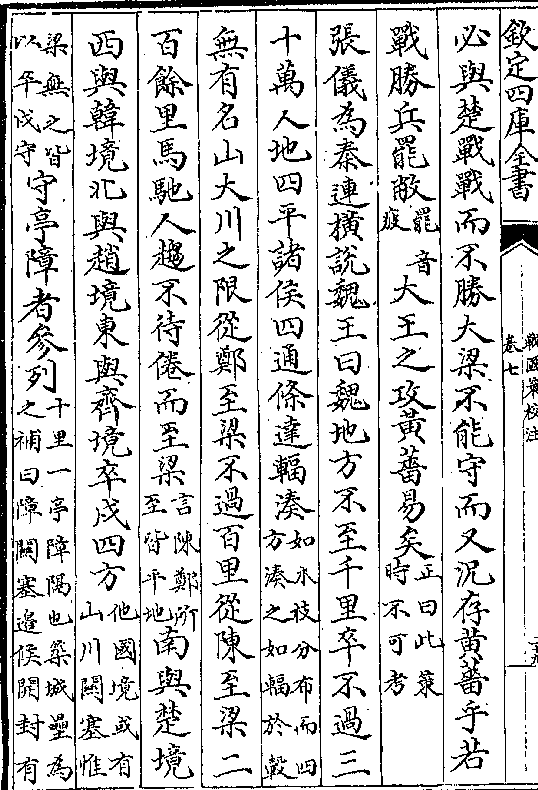 欽定四庫全書
戰國策校注
卷七
必與楚戰戰而不勝大梁不能守而又況存黃蕃乎若
戰勝兵罷敝罷音疲大王之攻黃蕃易矣正曰此策時不可考
張儀為秦連橫說魏王曰魏地方不至千里卒不過三
十萬人地四平諸侯四通條達輻湊如水枝分布而四方湊之如輻於轂
無有名山大川之限從鄭至梁不過百里從陳至梁二
百餘里馬馳人趨不待倦而至梁言陳鄭所至皆平地南與楚境
西與韓境北與趙境東與齊境卒戍四方他國境或有山川關塞惟
梁無之皆以平戍守守亭障者參列十里一亭障隔也築城壘為之補曰障關塞邉候開封有